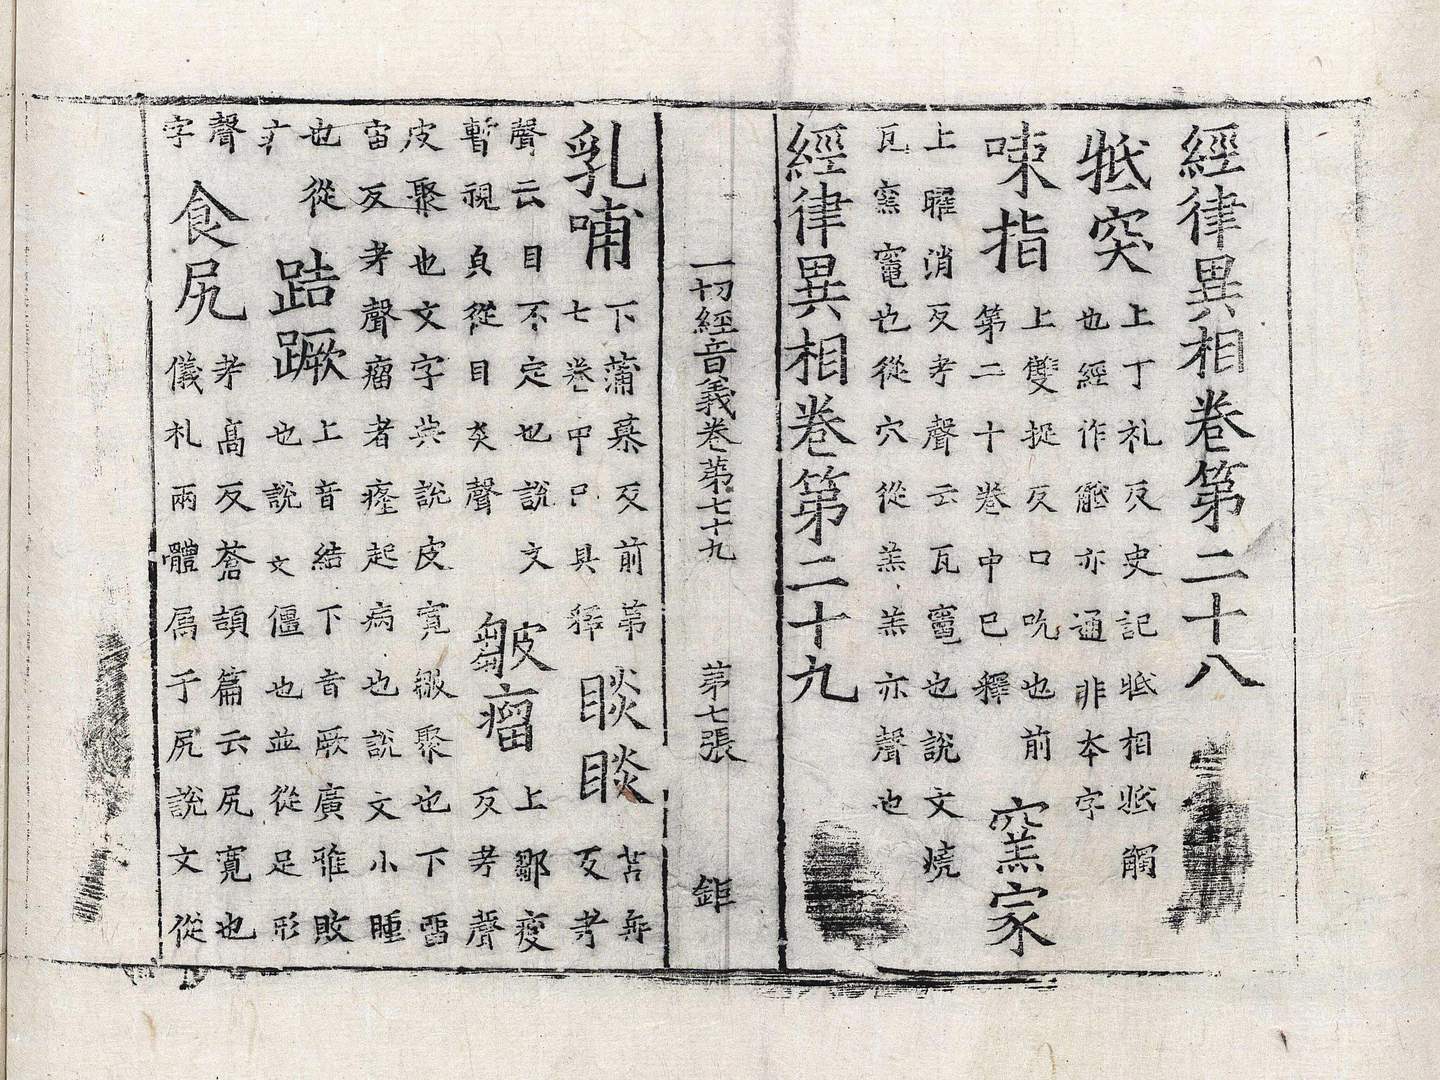 經律異相卷第二十八
牴突
上丁礼反史記牴相牴觸
也經作觝亦通非本字
㖩指
上雙捉反口吮也前
第二十卷中已釋
窯家
上曜消反考聲云瓦竈也說文燒
瓦窯竈也從穴從羔羔亦聲也
經律異相卷第二十九
一切經音義卷第七十九 第七張 鉅
乳哺
下蒲慕反前第
七卷中已具釋
睒睒
苫冉
反考
聲云目不定也說文
暫視皃從目炎聲
皺瘤
上鄒瘦
反考聲
皮聚也文字典說皮寬皺聚也下留
宙反考聲瘤者瘜起病也說文小腫
也從
疒
蹶
上音結下音厥廣雅敗
也說文僵也並從足形
聲
字
食尻
考高反蒼頡篇云尻寬也
儀礼兩髀屬于尻說文從